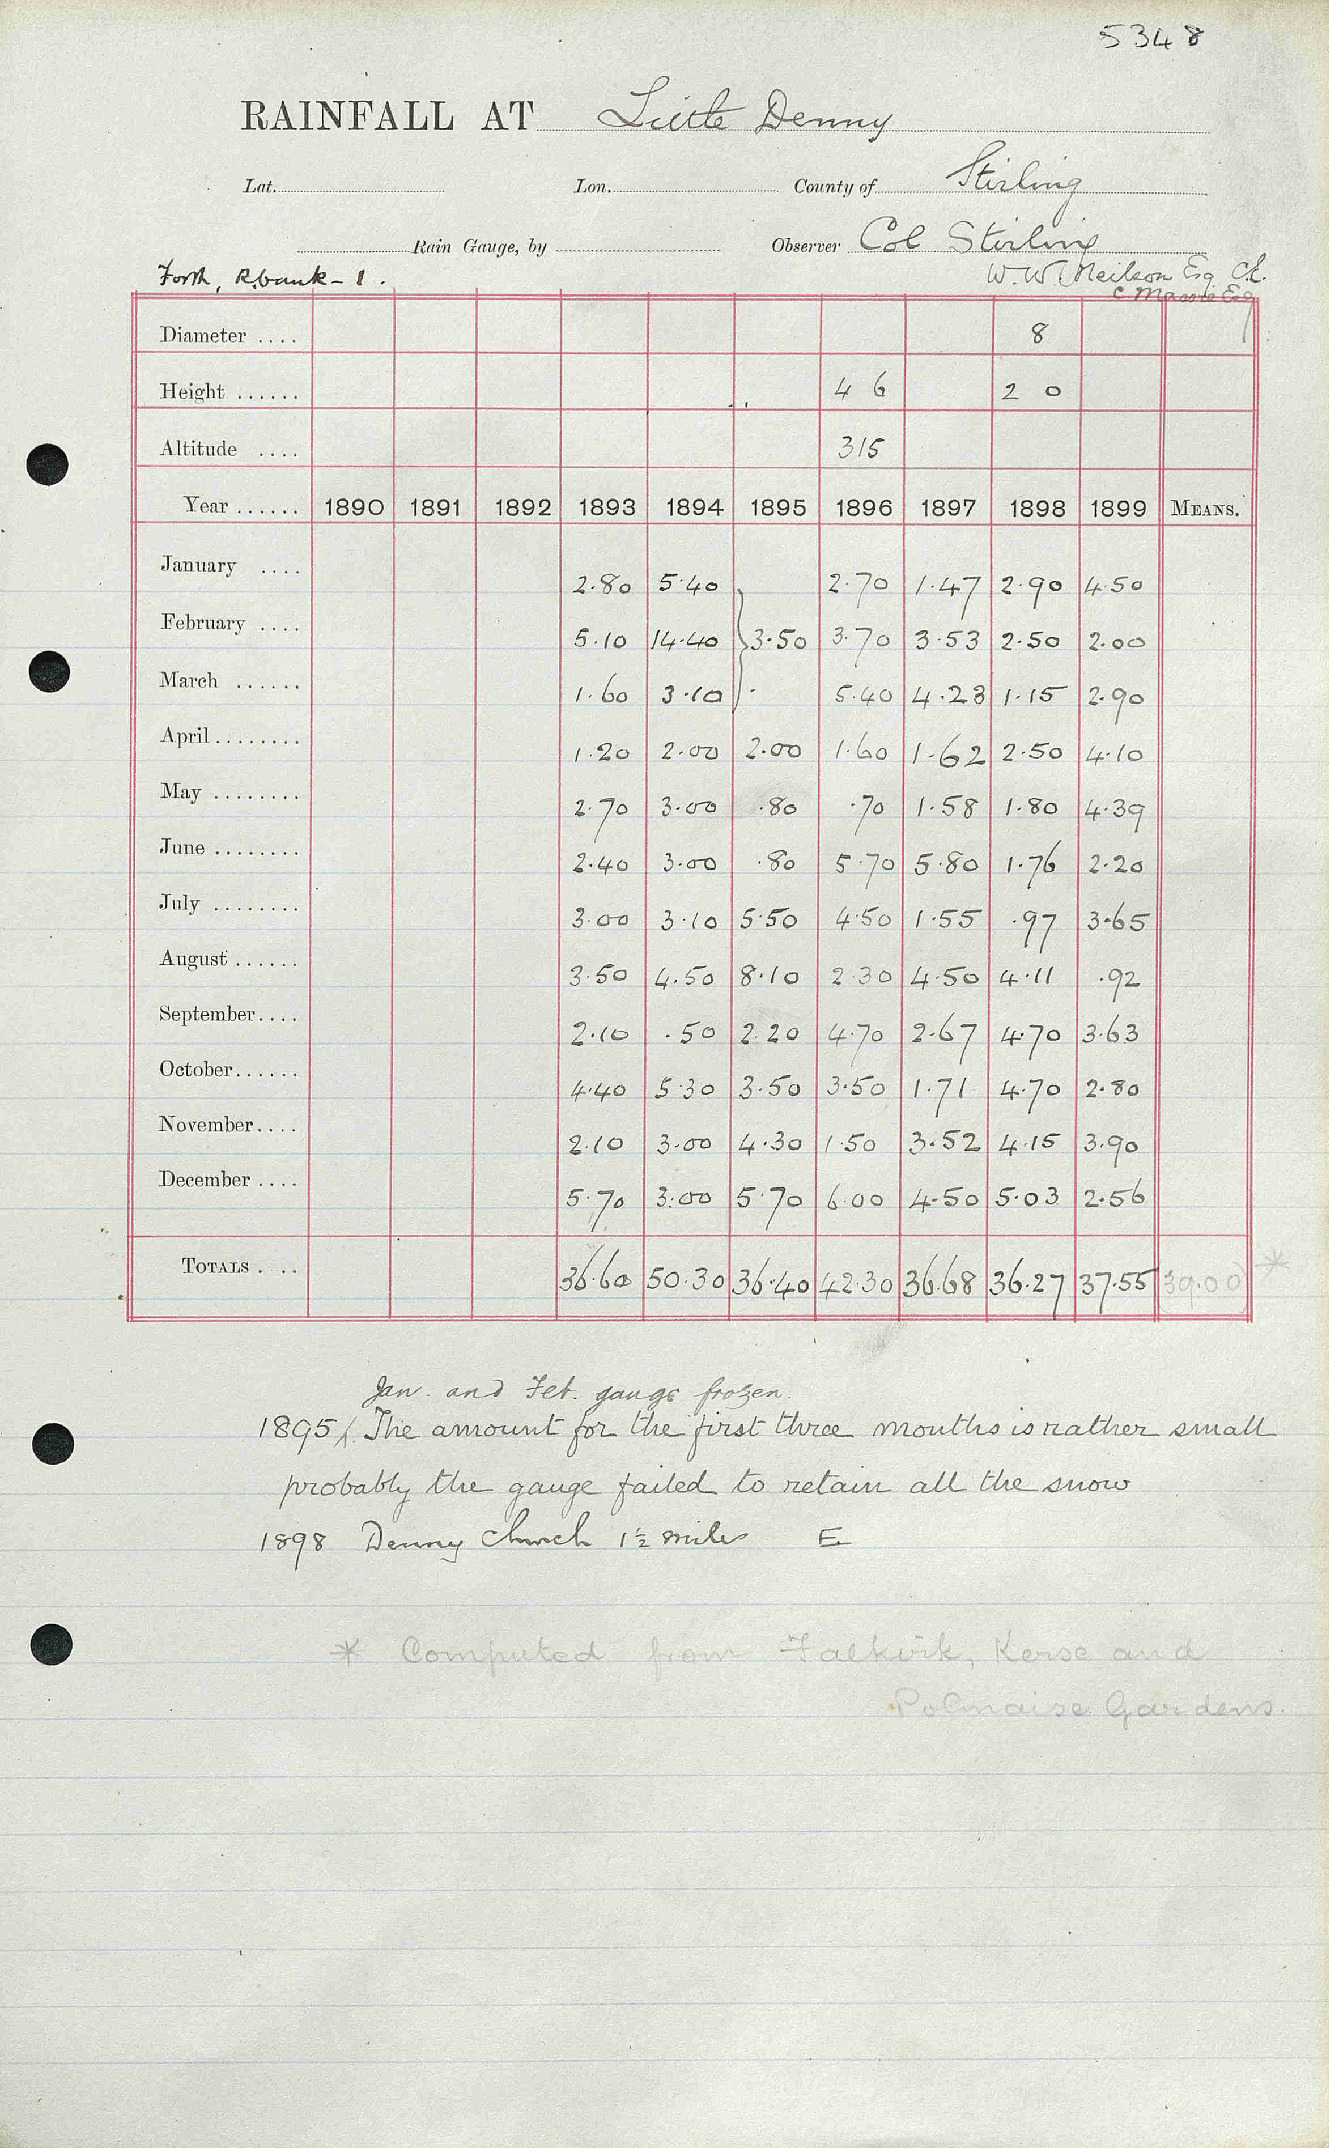 5348
RAINFALL AT Little Denny
Lat. Lon. County of Stirling
Rain Gauge, by Observer Col Stirling
Forth, R.bank - 1. W.W. Neilson Esq C.E.
C Massie Esq
Diameter .... 8
Height ...... 4 6 2 0
Altitude .... 315
Year ...... 1890 1891 1892 1893 1894 1895 1896 1897 1898 1899 MEANS.
January .... 2.80 5.40 2.70 1.47 2.90 4.50
February .... 5.10 14.40 } 3.50 3.70 3.53 2.50 2.00
March ...... 1.60 3.10 . 5.40 4.23 1.15 2.90
April........ 1.20 2.00 2.00 1.60 1.62 2.50 4.10
May ........ 2.70 3.00 .80 .70 1.58 1.80 4.39
June ........ 2.40 3.00 .80 5.70 5.80 1.76 2.20
July ........ 3.00 3.10 5.50 4.50 1.55 .97 3.65
August ...... 3.50 4.50 8.10 2.30 4.50 4.11 .92
September.... 2.10 .50 2.20 4.70 2.67 4.70 3.63
October...... 4.40 5.30 3.50 3.50 1.71 4.70 2.80
November.... 2.10 3.00 4.30 1.50 3.52 4.15 3.90
December .... 5.70 3.00 5.70 6.00 4.50 5.03 2.56
TOTALS . .. 36.60 50.30 36.40 42.30 36.68 36.27 37.55 (39.00) *
Jan. and Feb. gauge frozen.
1895 / The amount for the first three months is rather small
probably the gauge failed to retain all the snow
1898 Denny Church 1½ miles E
* Computed from Falkirk, Kerse and
Polmaise Gardens.